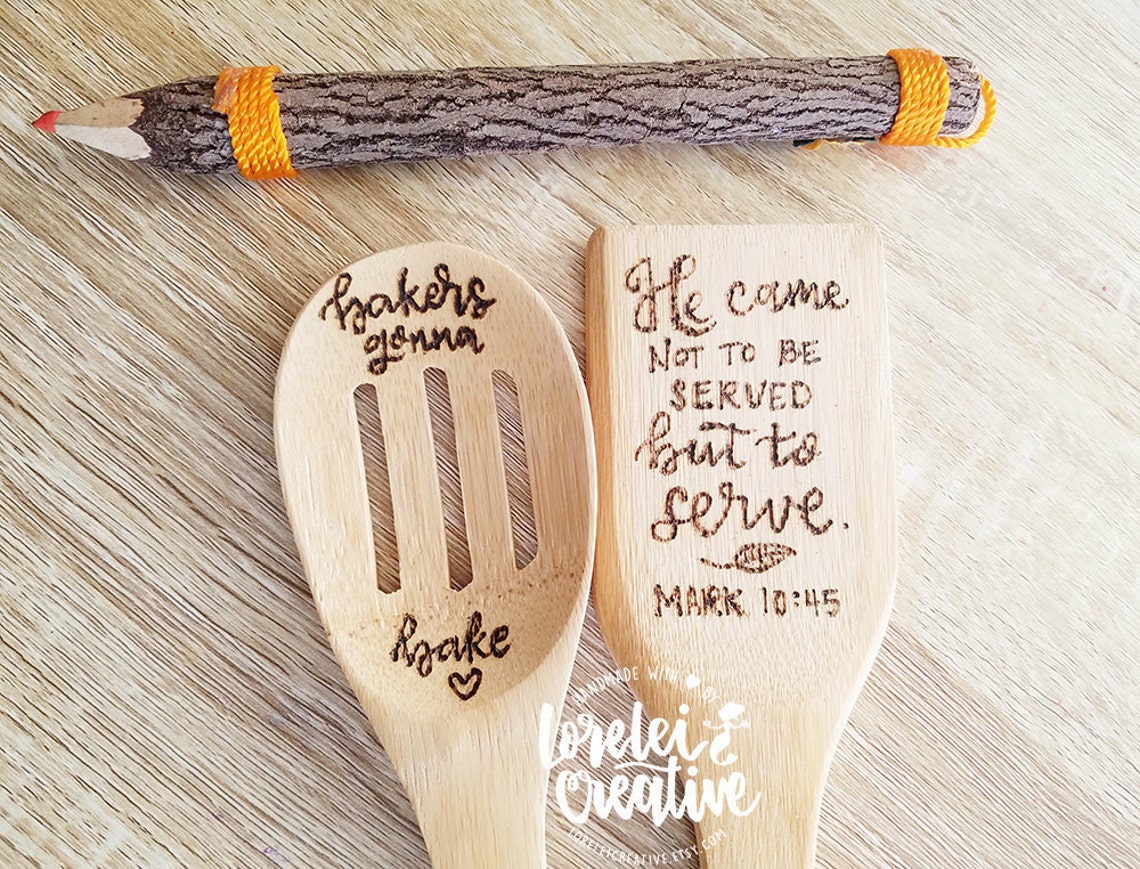 bakers
gonna
bake
He came
NOT TO BE
SERVED
but to
serve.
MARK 10:45
HANDMADE WITH BY
Lorelei
Creative
LORELEICREATIVE.ETSY.COM